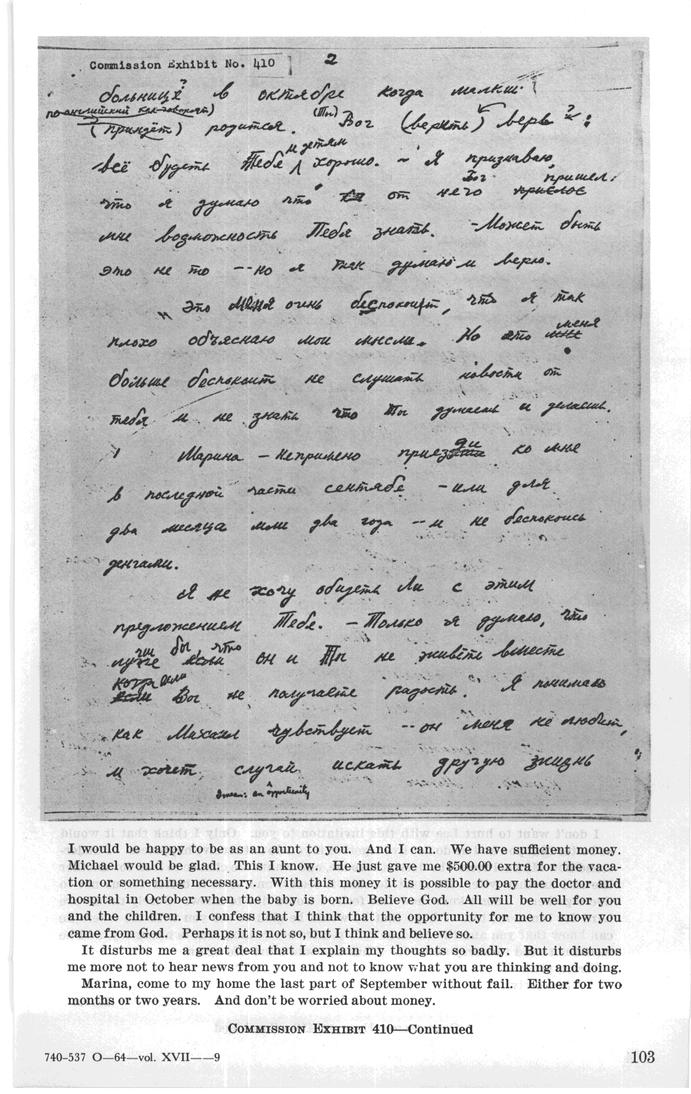 Commission Exhibit No. 410
2
больнице? в октябре когда малыш
по-английский как-говорят)
(принцёт) родится. (ты) Бог (веркть) верь ? :
всё будеть Тебе и детям хорошо. ~ Я признаваю,
Бог пришел:
что я думаю что от него
мне возможность Тебя знать. -Может быть
это не то -- но я так думаю и верю.
Это меня очень беспокоит, что я так
плохо объяснаю мои мысли. Но это меня
больше беспокоит не слушать новости от
тебя и не знать что Ты думаешь и делаешь.
Марина - Непримено приезди ко мне
в последной части сентябе - или для
два месяца или два года -- и не беспокоись
денгами.
Я не хочу обидеть Ли с этим
предложением Тебе. - Только я думаю, что
лучше бы, что он и Ты не живёте вместе
когда или
если Вы не получаете радость. Я понимаю
как Михаил чувствует -- он меня не любит,
и хочет, случай искать другую жизнь
I mean: an opportunity
I would be happy to be as an aunt to you. And I can. We have sufficient money.
Michael would be glad. This I know. He just gave me $500.00 extra for the vaca-
tion or something necessary. With this money it is possible to pay the doctor and
hospital in October when the baby is born. Believe God. All will be well for you
and the children. I confess that I think that the opportunity for me to know you
came from God. Perhaps it is not so, but I think and believe so.
It disturbs me a great deal that I explain my thoughts so badly. But it disturbs
me more not to hear news from you and not to know what you are thinking and doing.
Marina, come to my home the last part of September without fail. Either for two
months or two years. And don't be worried about money.
COMMISSION EXHIBIT 410—Continued
740-537 O—64—vol. XVII——9
103